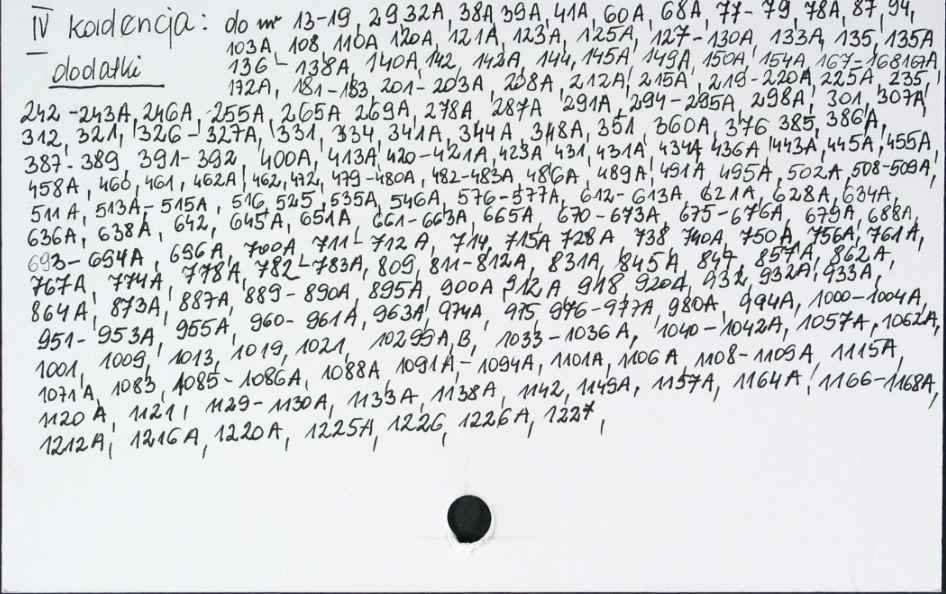 IV kadencja: do nr 13-19, 29 32A, 38A 39A, 41A, 60A, 68A, 77-79, 78A, 87, 94,
103A, 108, 110A 120A, 121A, 123A, 125A, 127-130A, 133A, 135, 135A
dodatki 136-138A, 140A, 142, 142A, 144, 145A, 149A, 150A, 154A, 167-168 167A
172A, 181-183, 201-203A, 208A, 212A, 215A, 219-220A, 225A, 235,
242-243A, 246A-255A, 265A 269A, 278A 287A 291A, 294-295A, 298A, 301, 307A,
312, 321, 326-327A, 331, 334, 341A, 344A, 348A, 351, 360A, 376 385, 386A,
387-389, 391-392, 400A, 413A, 420-421A, 423A, 431, 431A, 434A 436A, 443A, 445A, 455A,
458A, 460, 461, 462A, 462, 472, 479-480A, 482-483A, 486A, 489A, 491A, 495A, 502A, 508-509A,
511A, 513A-515A, 516, 525, 535A, 546A, 576-577A, 612-613A, 621A, 628A, 634A,
636A, 638A, 642, 645A, 651A 661-663A, 665A, 670-673A, 675-676A, 679A, 688A,
693-694A, 696A, 700A 711-712A, 714, 715A 728A, 738, 740A, 750A, 756A, 761A,
767A, 774A, 778A, 782-783A, 809, 811-812A, 831A, 845A, 847, 857A, 862A,
864A, 873A, 887A, 889-890A, 895A, 900A, 912A 918 920A, 932, 932A, 933A,
951-953A, 955A, 960-961A, 963A, 974A, 975, 976-977A, 980A, 994A, 1000-1004A,
1001, 1009, 1013, 1019, 1021, 10299A,B, 1033-1036A, 1040-1042A, 1057A, 1062A,
1071A, 1083, 1085-1086A, 1088A 1091A-1094A, 1101A, 1106A, 1108-1109A, 1115A,
1120A, 1121, 1129-1130A, 1133A, 1138A, 1142, 1149A, 1157A, 1164A, 1166-1168A,
1212A, 1216A, 1220A, 1225A, 1226, 1226A, 1227,